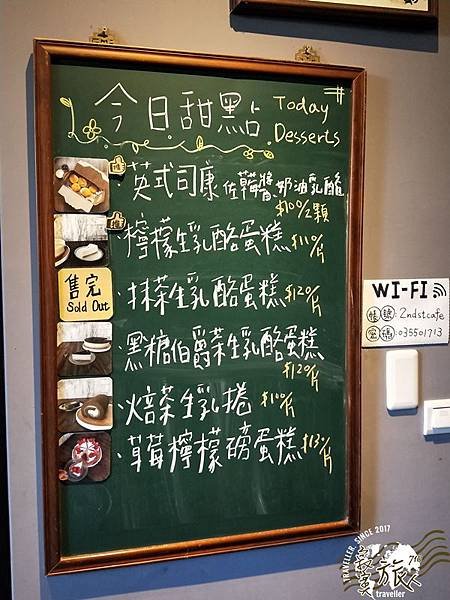 今日甜點 Today
Desserts
推 ·英式司康 佐草莓醬、奶油乳酪
$100/2顆
推 ·檸檬生乳酪蛋糕 $110/片
售完
Sold Out
·抹茶生乳酪蛋糕 $120/片
·黑糖伯爵茶生乳酪蛋糕
$120/片
·焙茶生乳捲 $100/片
·草莓檸檬磅蛋糕 $130/片
WI-FI
帳號:2ndstcafe
密碼:035501713
TRAVELLER, SINCE 2017
旅人
traveller